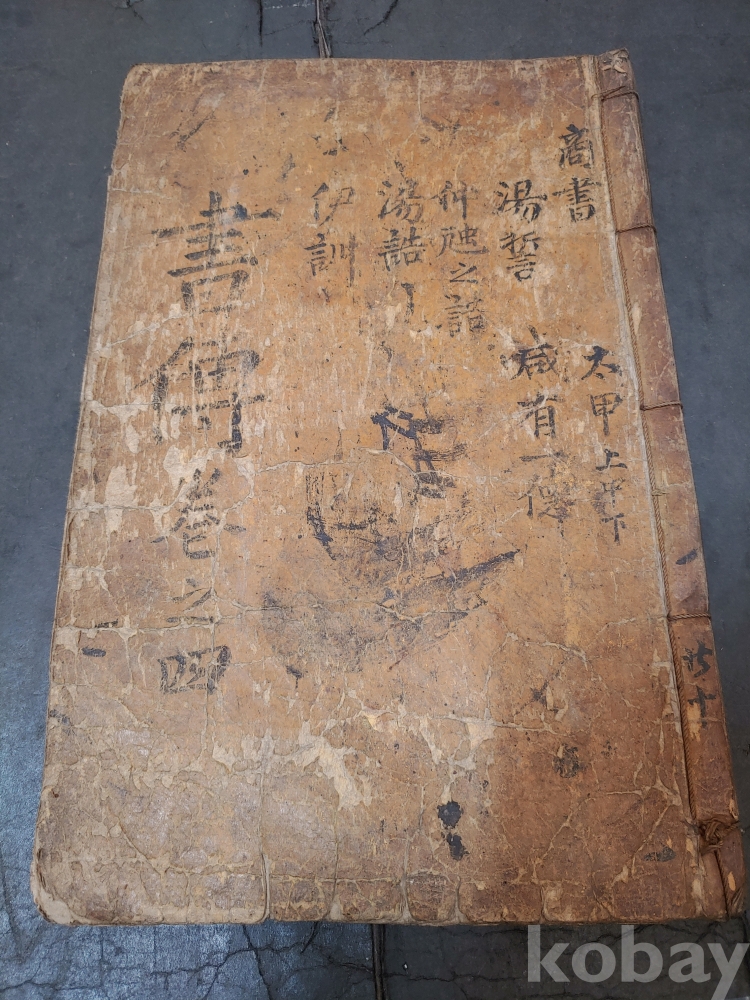 商書
湯誓
仲虺之誥
湯誥
伊訓
太甲上中下
咸有一德
書傳卷之四
共十
kobay